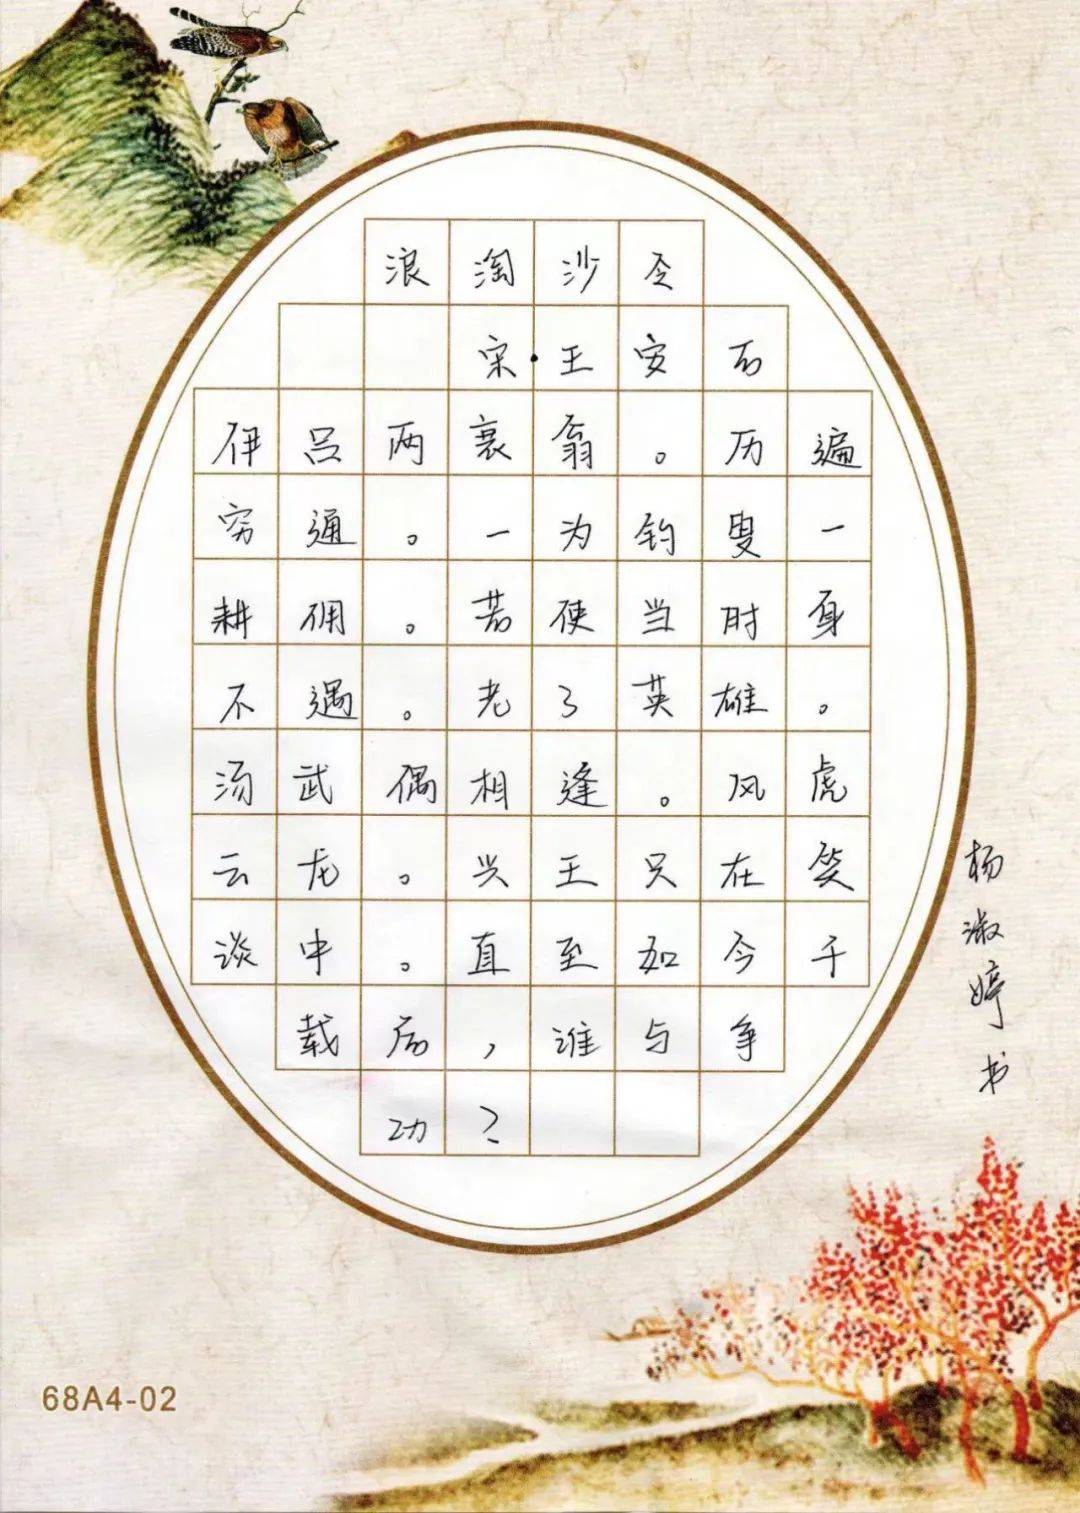 浪淘沙令
宋·王安石
伊吕两衰翁。历遍
穷通。一为钓叟一
耕佣。若使当时身
不遇。老了英雄。
汤武偶相逢。风虎
云龙。兴王只在笑
谈中。直至如今千
载后，谁与争
功？
杨淑婷书
68A4-02